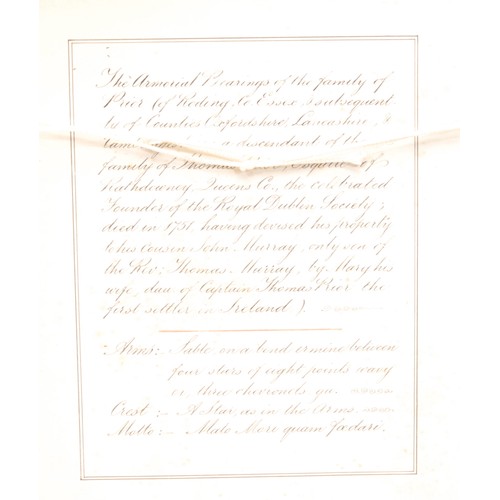 The Armorial Bearings of the family of
Prior (of Roding Co. Essex, & subsequent-
ly of Counties Oxfordshire, Lancashire, &
a descendant of the
family of Thomas Esquire of
Rathdowney, Queens Co., the celebrated
Founder of the Royal Dublin Society;
died in 1751. having devised his property
to his Cousin John Murray, only son of
the Rev: Thomas Murray, by Mary his
wife, dau. of Captain Thomas Prior the
first settler in Ireland).
Arms: Sable on a bend ermine between
four stars of eight points wavy
or, three chevronels gu.
Crest: - A Star, as in the Arms.
Motto: - Malo Mori quam fœdari.